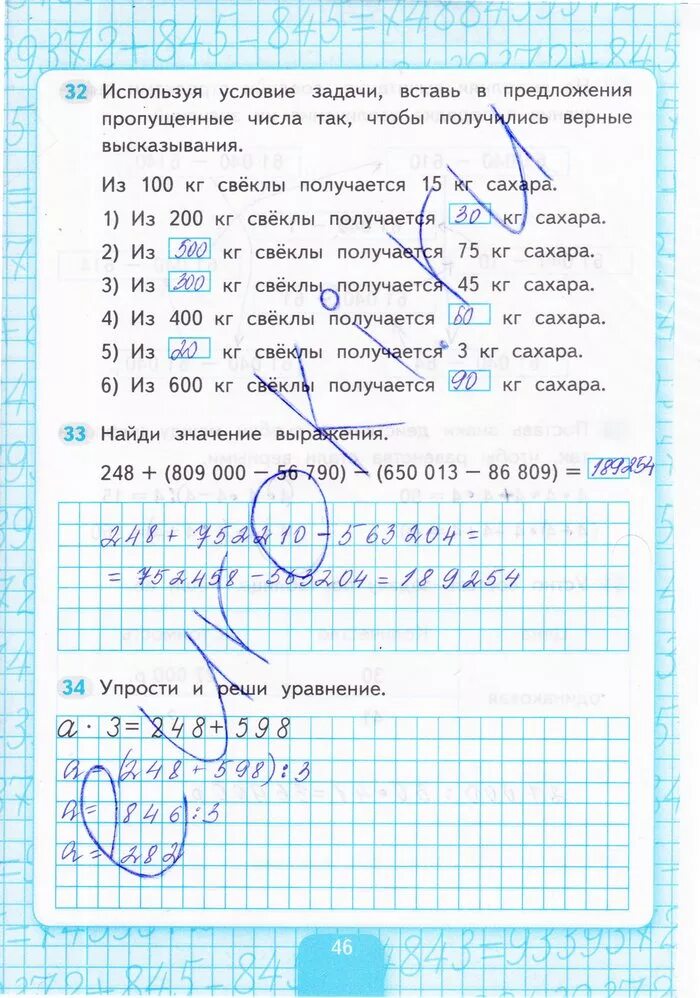 32 Используя условие задачи, вставь в предложения
пропущенные числа так, чтобы получились верные
высказывания.
Из 100 кг свёклы получается 15 кг сахара.
1) Из 200 кг свёклы получается 30 кг сахара.
2) Из 500 кг свёклы получается 75 кг сахара.
3) Из 300 кг свёклы получается 45 кг сахара.
4) Из 400 кг свёклы получается 60 кг сахара.
5) Из 20 кг свёклы получается 3 кг сахара.
6) Из 600 кг свёклы получается 90 кг сахара.
33 Найди значение выражения.
248 + (809 000 − 56 790) − (650 013 − 86 809) = 189254
248 + 752210 − 563204 =
= 752458 − 563204 = 189254
34 Упрости и реши уравнение.
а · 3 = 248 + 598
а (248 + 598) : 3
а = 846 : 3
а = 282
46